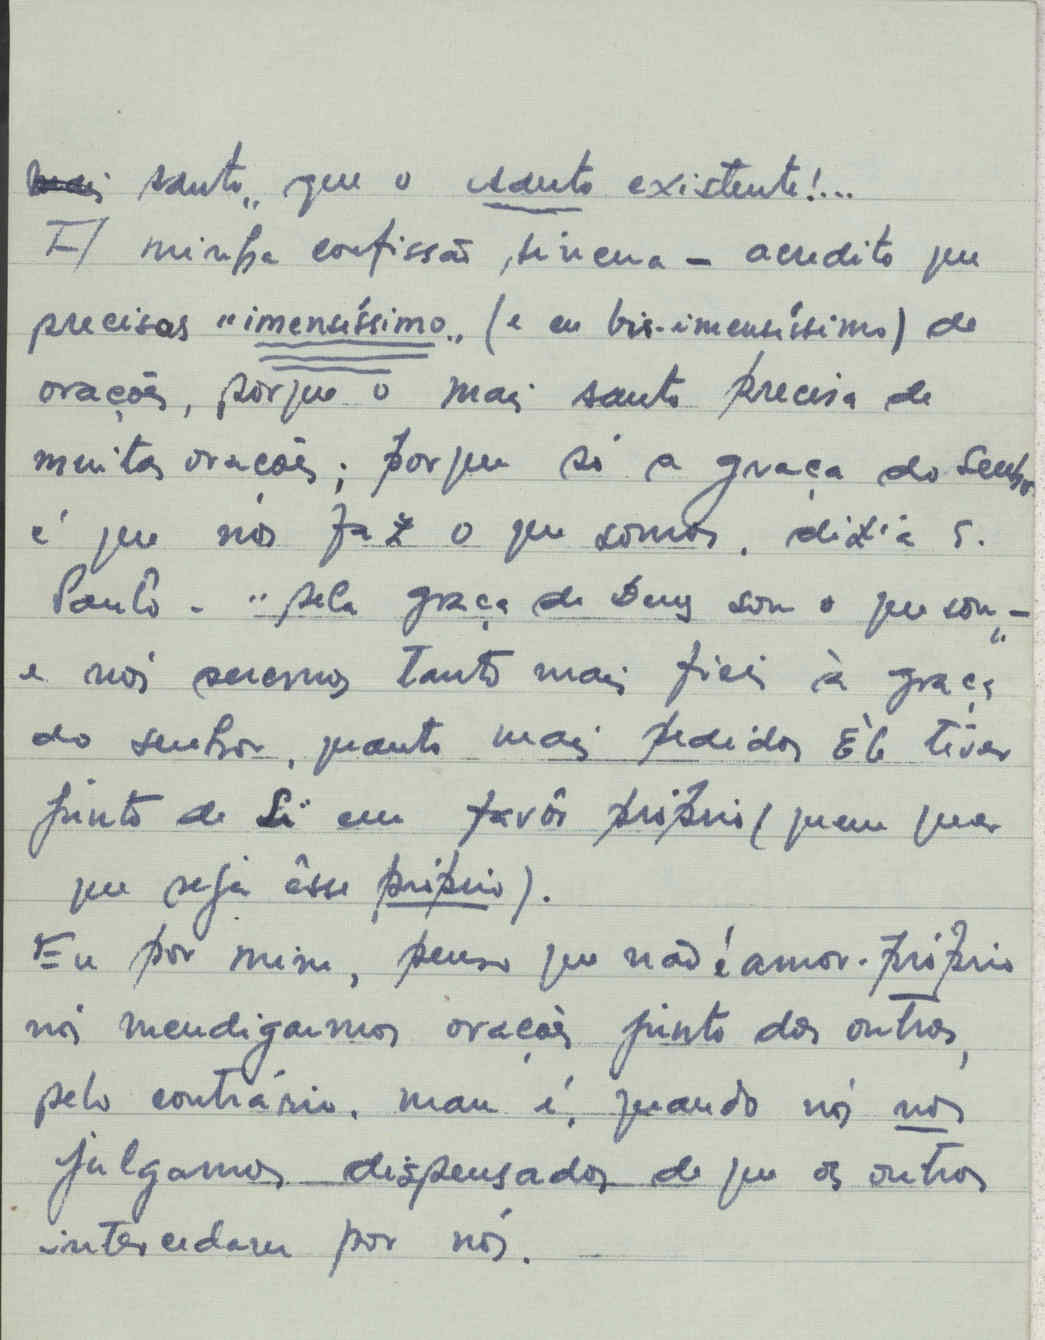 santo„ que o santo existente!...
minha confissão, sincera - acredito que
precisas "imensíssimo„ (e eu bis-imensíssimo) de
orações, porque o mais santo precisa de
muitas orações; porque só a graça do Senhor
é que nos faz o que somos. dizia S.
Paulo - "pela graça de Deus sou o que sou„ -
e nós seremos tanto mais fieis à graça
do senhor, quanto mais pedidos Êle tiver
junto de Si em favôr próprio (quem quer
que seja êsse próprio).
Eu por mim, penso que não é amor-próprio
nós mendigarmos orações junto dos outros,
pelo contrário. mau é, quando nós nos
julgamos dispensados de que os outros
intercedam por nós.